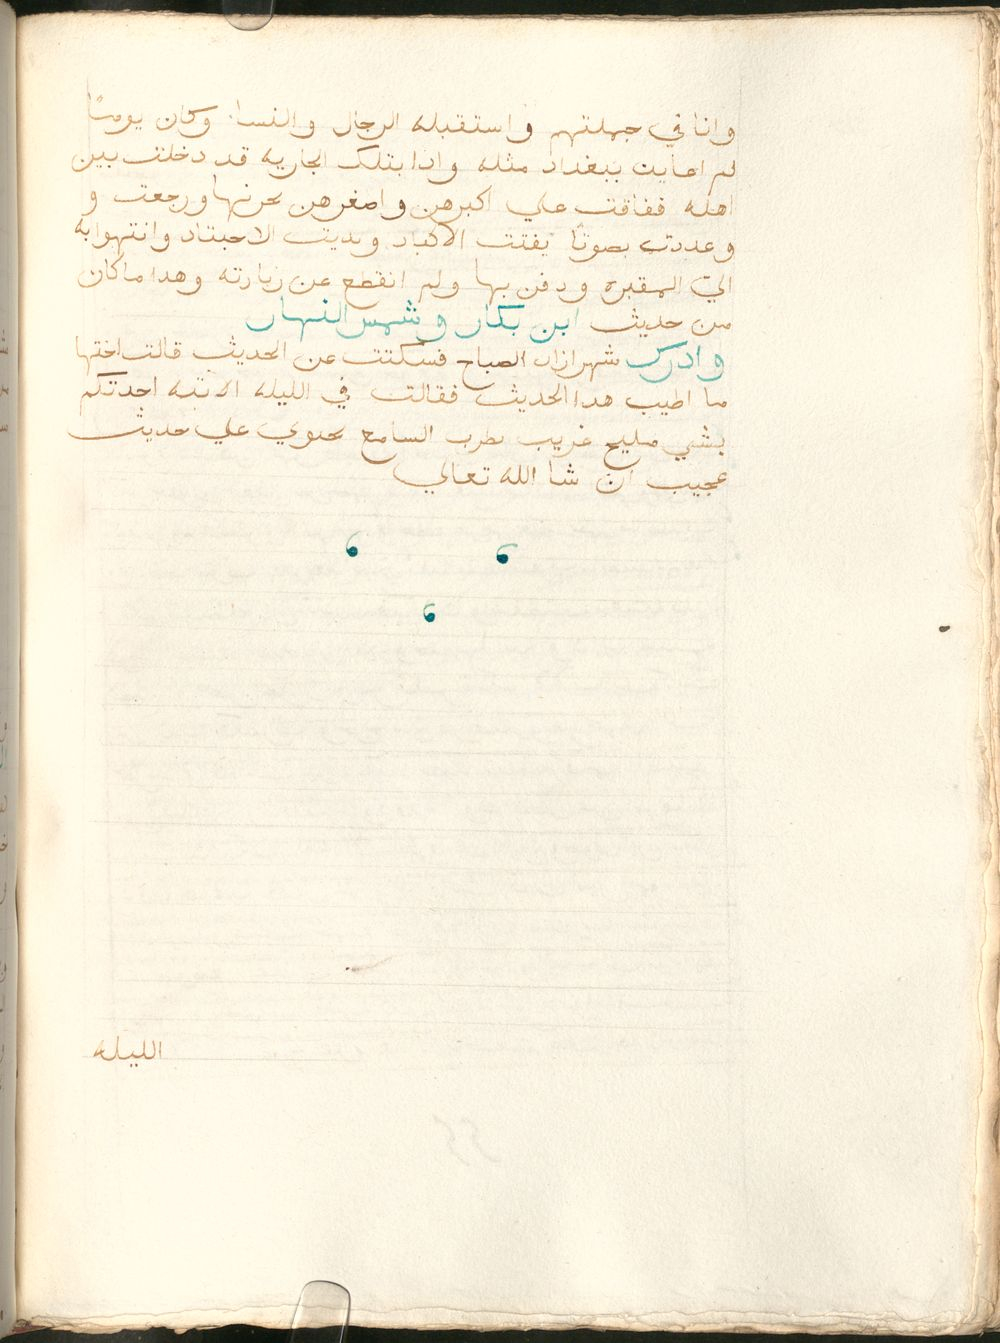 وانا في جملتهم واستقبله الرجال والنسا وكان يومًا
لم اعاين ببغداد مثله واذا بتلك الجاريه قد دخلت بين
اهله ففاقت علي اكبرهن واصغرهن بحزنها ورجعت و
وعددت بصوتًا يفتت الاكباد ويديب الاجساد وانتهوا به
الي المقبره ودفن بها ولم انقطع عن زيارته وهدا ماكان
من حديث ابن بكار وشمس النهار
وادرك شهرازاد الصباح فسكتت عن الحديث قالت اختها
ما اطيب هدا الحديث فقالت في الليله الاتيه احدتكم
بشي مليح غريب يطرب السامع يحتوي علي حديث
عجيب ان شا الله تعالي
الليله